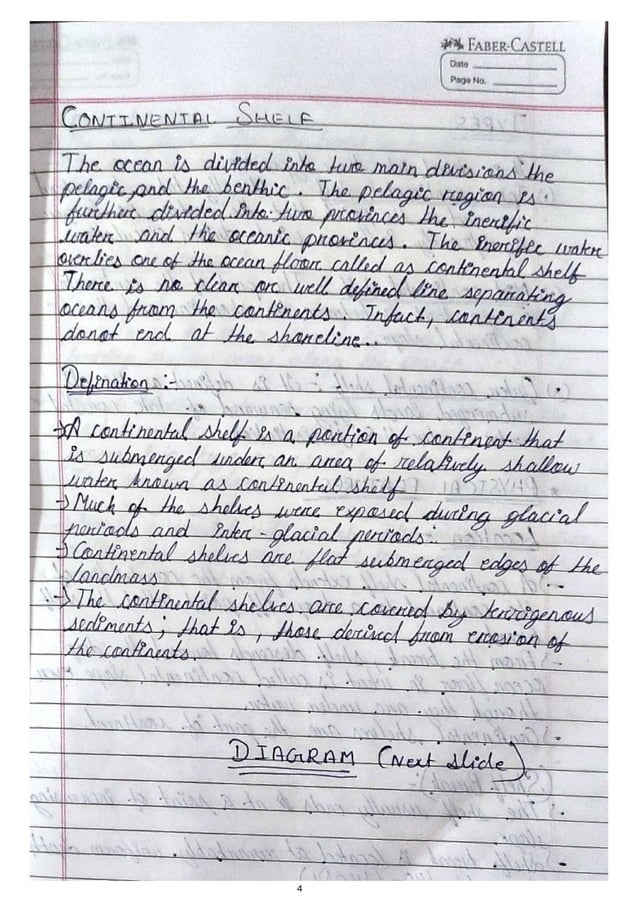 FABER-CASTELL
Date
Page No.
CONTINENTAL SHELF
The ocean is divided into two main divisions the
pelagic and the benthic. The pelagic region is
further divided into two provinces the ineritic
water and the oceanic provinces. The ineritic water
overlies one of the ocean floor called as continental shelf
There is no clear or well defined line separating
oceans from the continents. Infact, continents
donot end at the shoreline..
Defination :-
→A continental shelf is a portion of continent that
is submerged under an area of relatively shallow
water known as continental shelf
→ Much of the shelves were exposed during glacial
periods and inter-glacial periods.
→ Continental shelves are flat submerged edges of the
landmass
→ The continental shelves are covered by terrigenous
sediments; that is, those derived from erosion of
the continents.
DIAGRAM (Next slide)
4